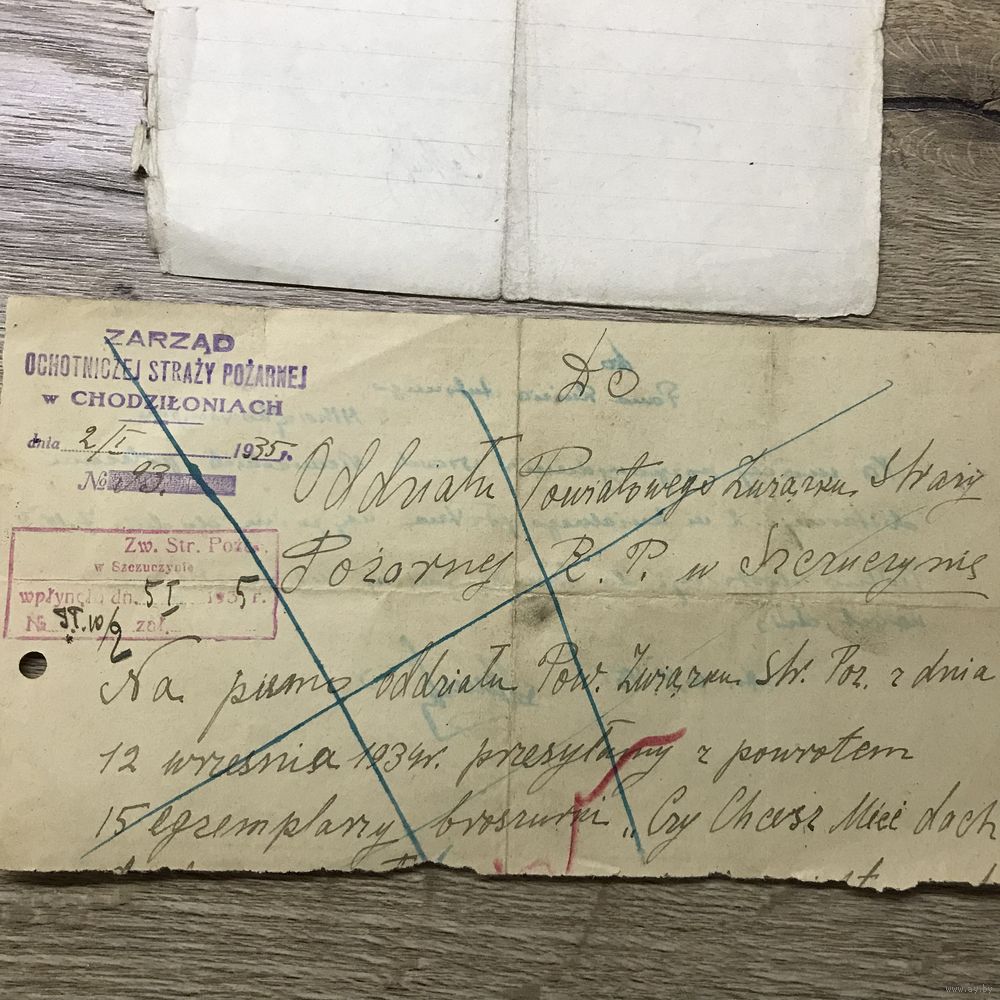 ZARZĄD
OCHOTNICZEJ STRAŻY POŻARNEJ
w CHODZIŁONIACH
dnia 2/I 1935 r.
№ 93.
Do
Oddziału Powiatowego Związku Straży
Pożarnej R. P. w Szczuczynie
Zw. Str. Poż.
w Szczuczynie
wpłynęło dn. 5 I 1935 r.
№ zał.
Na pismo Oddziału Pow. Związku Str. Poż. z dnia
12 września 1934r. przesyłamy z powrotem
15 egzemplarzy broszurki „Czy Chcesz Mieć dach
www.ay.by